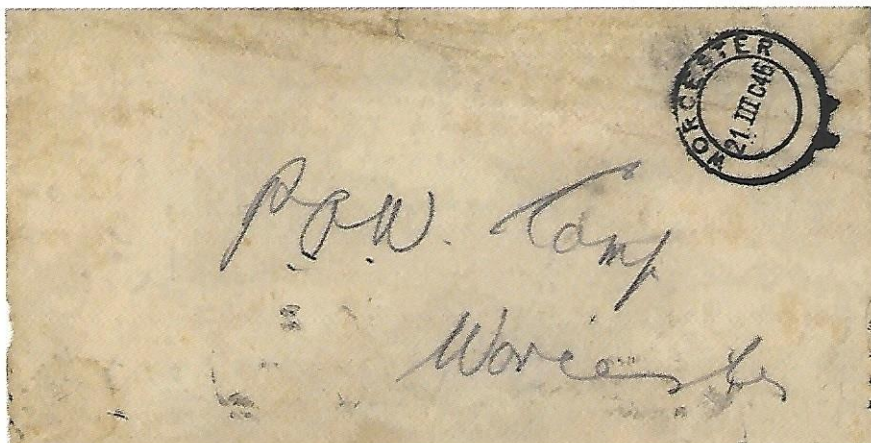 WORCESTER
21 III C46
P.O.W. Camp
Worcester